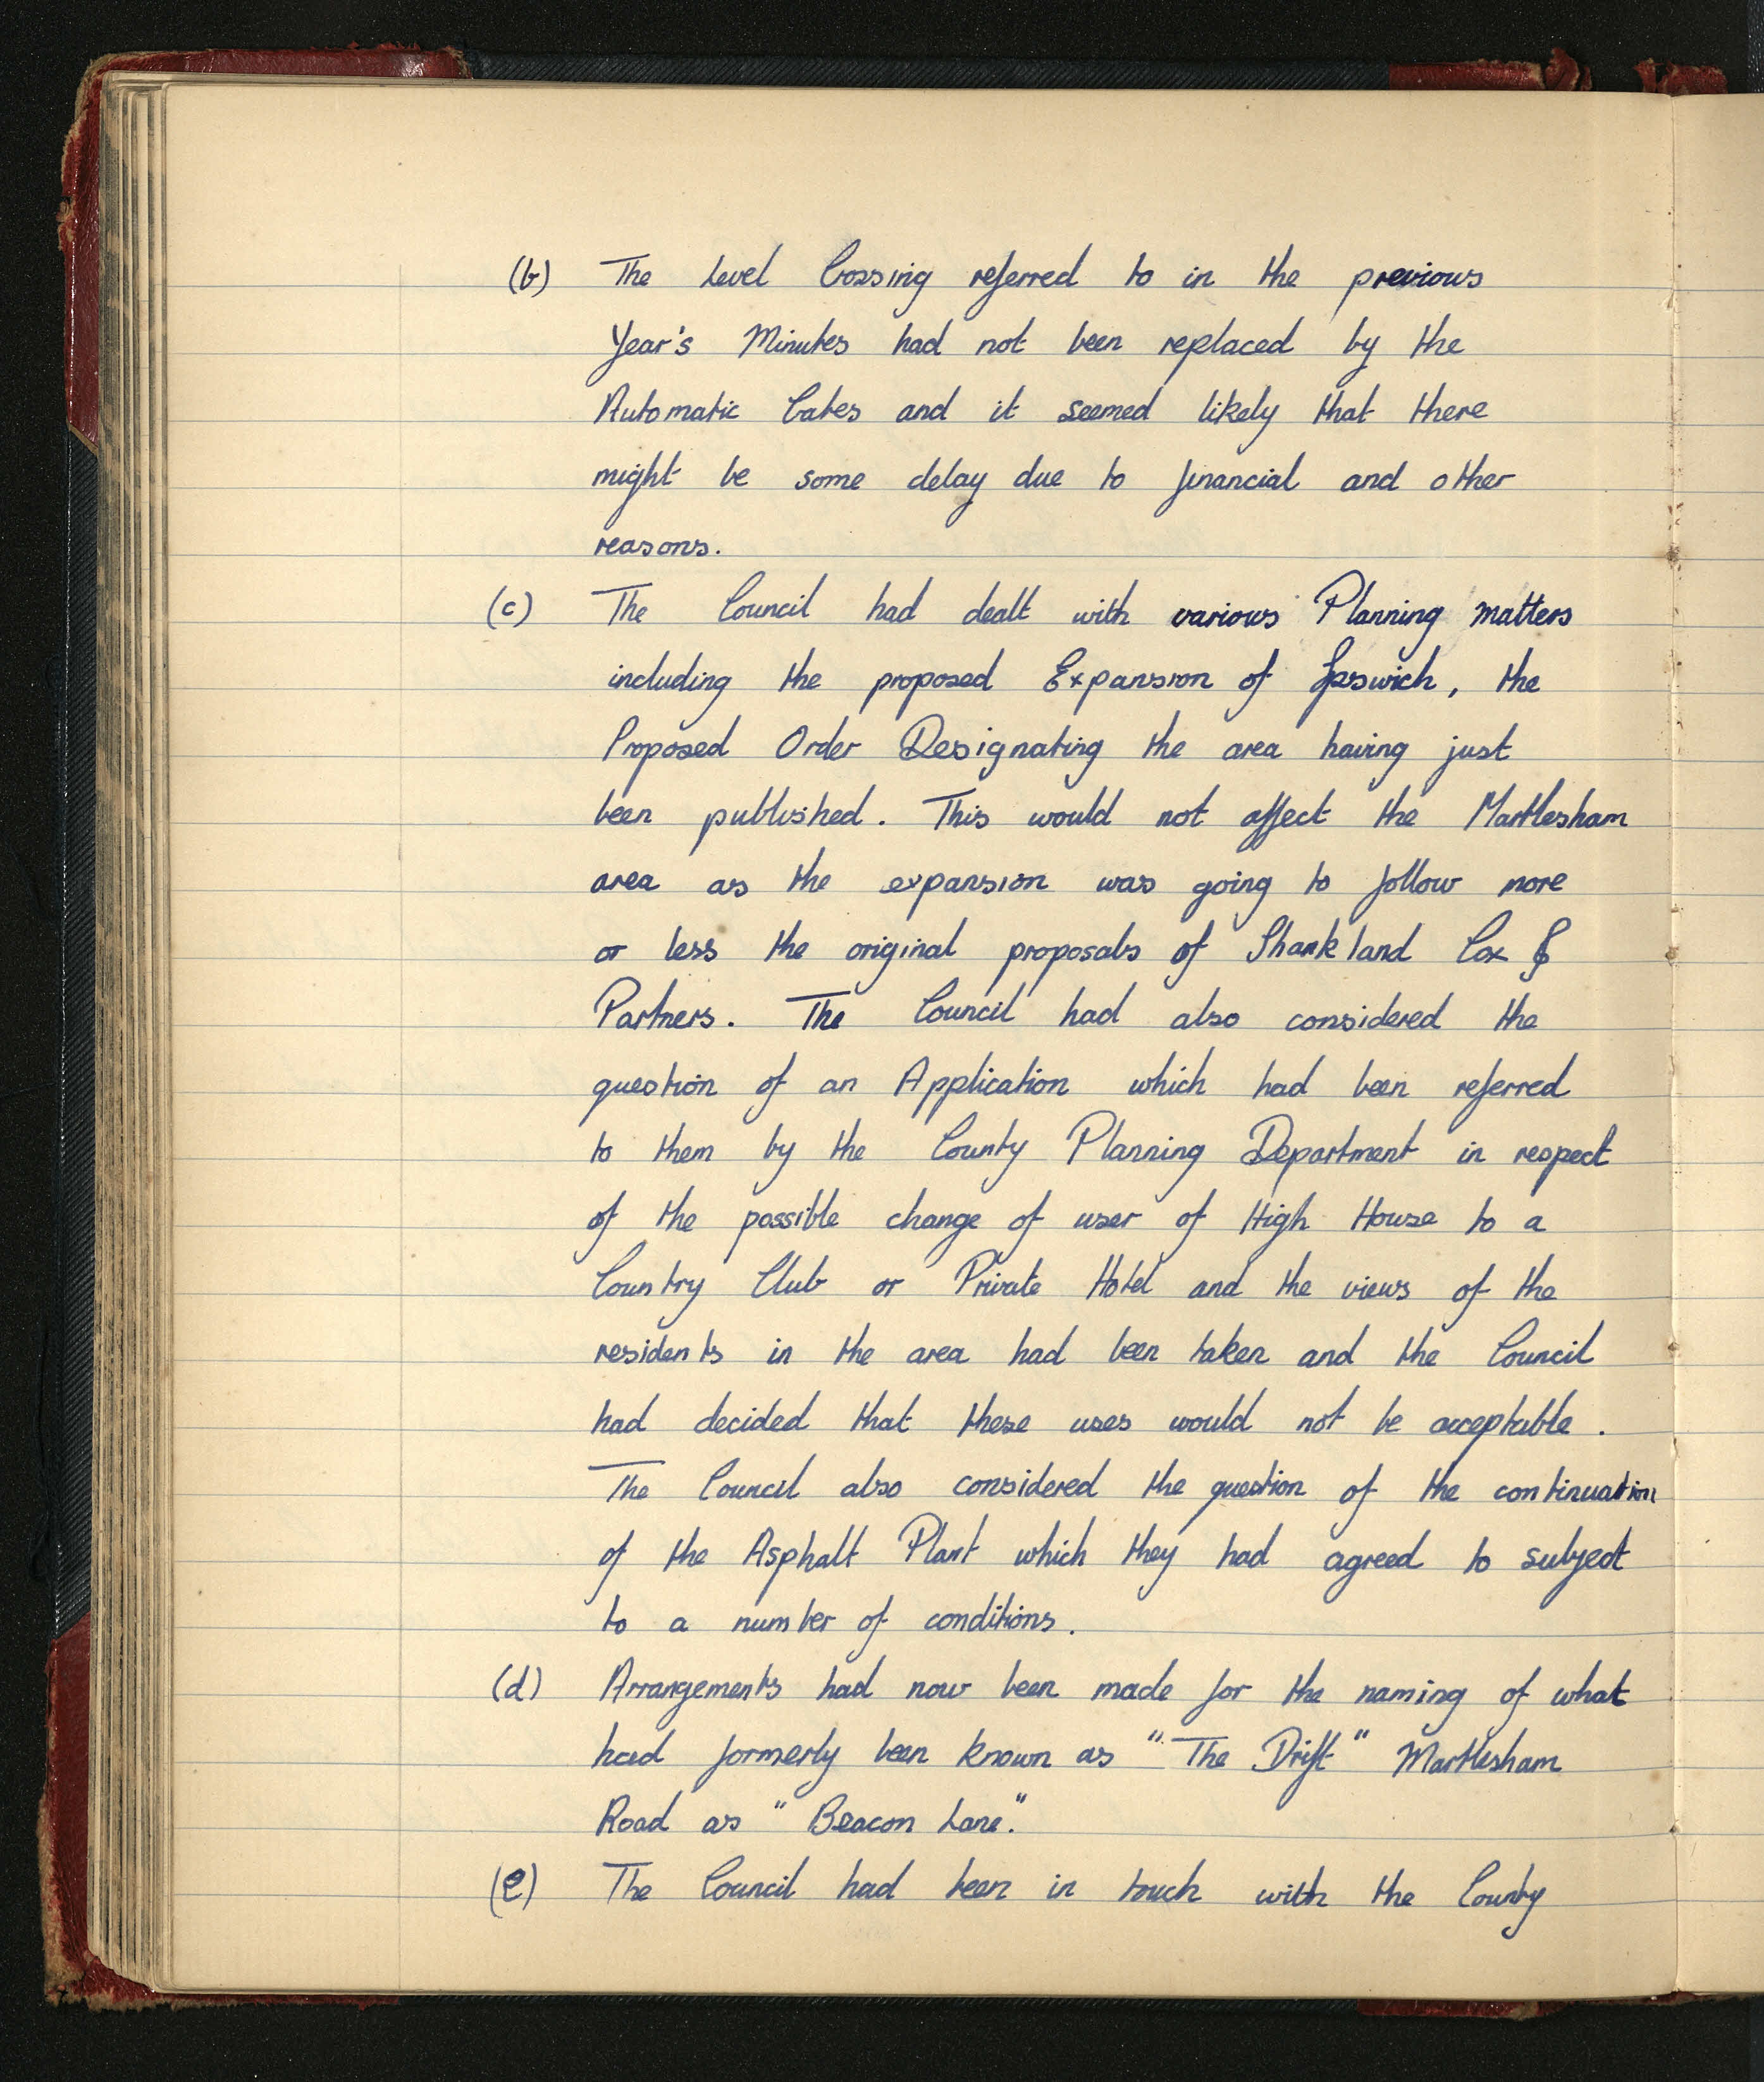 (b) The Level Crossing referred to in the previous
Year's Minutes had not been replaced by the
Automatic Gates and it seemed likely that there
might be some delay due to financial and other
reasons.
(c) The Council had dealt with various Planning matters
including the proposed Expansion of Ipswich, the
Proposed Order Designating the area having just
been published. This would not affect the Martlesham
area as the expansion was going to follow more
or less the original proposals of Shankland Cox &
Partners. The Council had also considered the
question of an Application which had been referred
to them by the County Planning Department in respect
of the possible change of user of High House to a
Country Club or Private Hotel and the views of the
residents in the area had been taken and the Council
had decided that these uses would not be acceptable.
The Council also considered the question of the continuation
of the Asphalt Plant which they had agreed to subject
to a number of conditions.
(d) Arrangements had now been made for the naming of what
had formerly been known as "The Drift" Martlesham
Road as "Beacon Lane."
(e) The Council had been in touch with the County